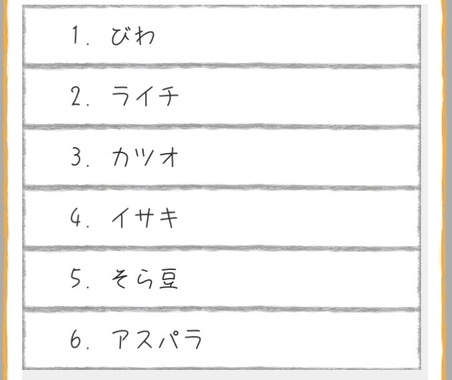 1. びわ
2. ライチ
3. カツオ
4. イサキ
5. そら豆
6. アスパラ